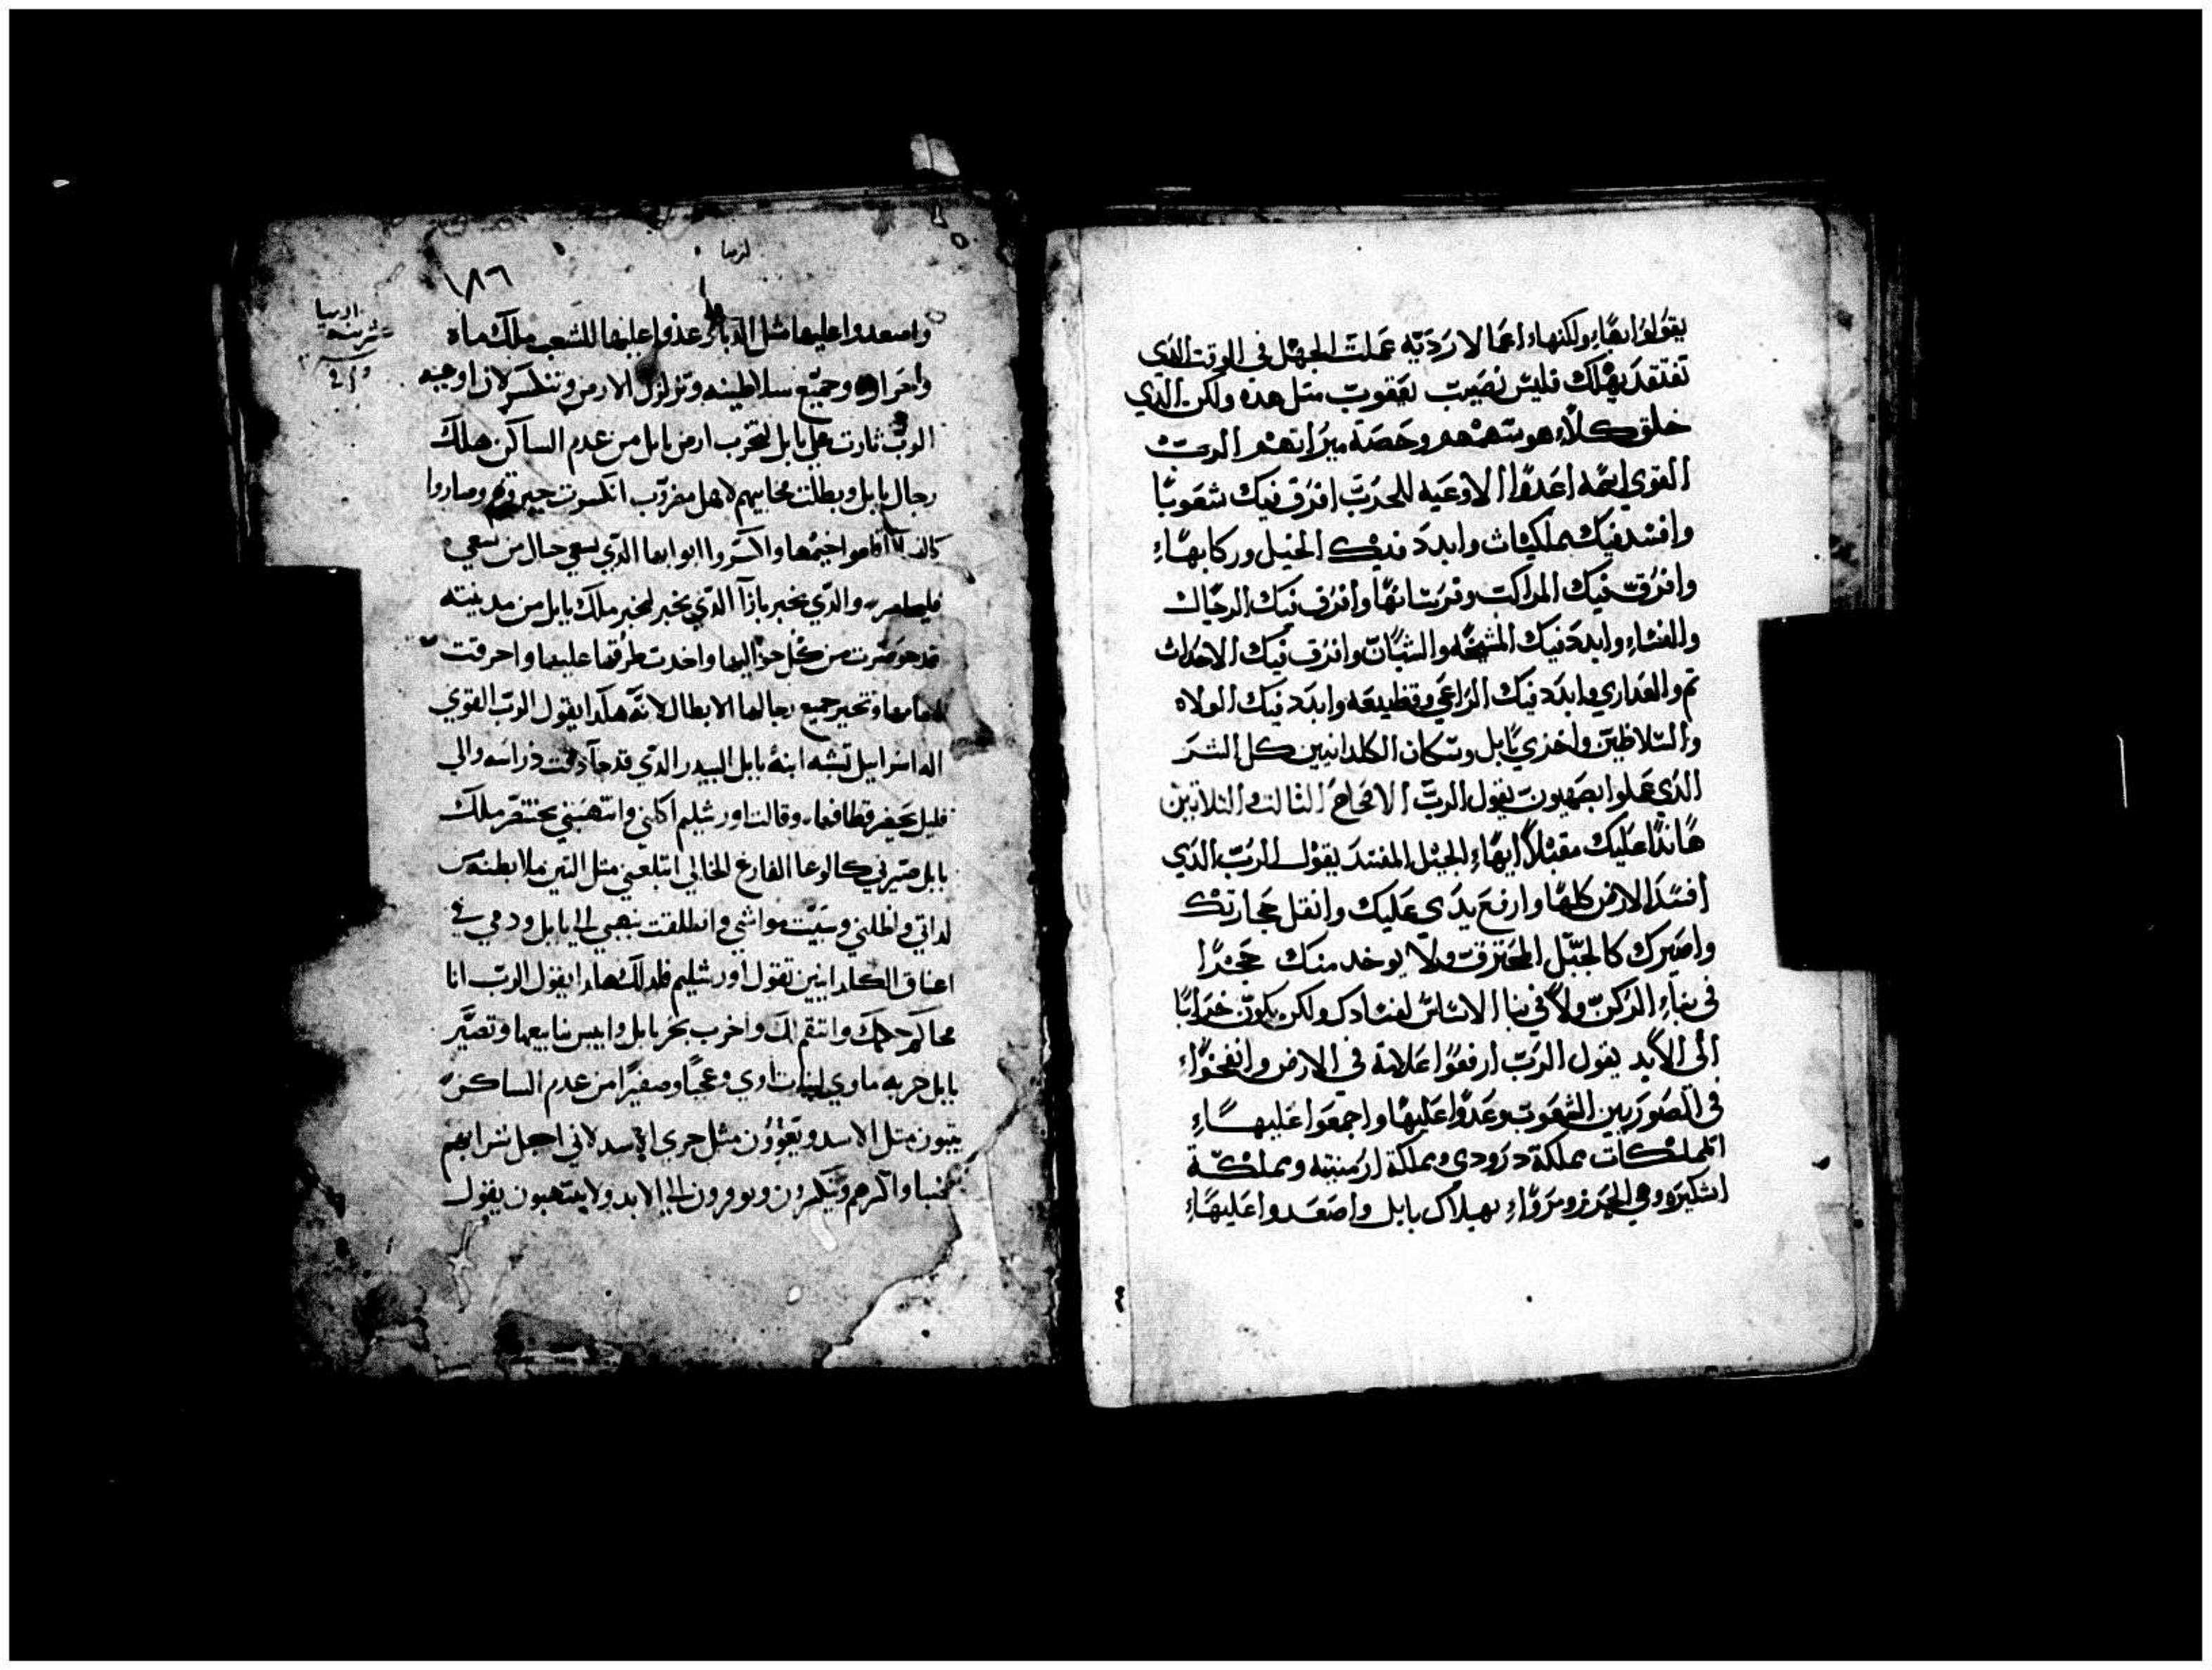 يقولوا بهاء ولكنها اعمالا رديه عملت الجهل في الوقت الذي
تفتقد تهلك فليس نصيب يعقوب مثل هده ولكن الدي
خلق كلاء هو سهمهم وحصة ميراتهم الرب
القوي اسمه اعدوا الاوعيه للحرب افرق فيك شعوبا
وافسد فيك مملكات وابدد فيك الخيل وركابهاء
وافرق فيك المراكب وفرسانها وافرق فيك الرجال
والنساء وابدد فيك المشيخه والشبان وافرق فيك الاحداث
تم والعداري وابدد فيك الراعي وقطيعه وابدد فيك الولاه
والسلاطين واخزي بابل وسكان الكلدانيين كل الشر
الذي عملوا بصهيون يقول الرب الاصحاح الثالث والثلاثين
هاندا عليك مقبلا ايهاء الجبل المفسد يقول الرب الذي
افسد الارض كلها وارفع يدي عليك وانقل حجارتك
واصيرك كالجبل المحترق ولا يوخد منك حجرا
في بناء الركن ولا في بنا الاساس لفسادك ولكن يكون خرابا
الى الابد يقول الرب ارفعوا علامة في الارض وانفخواء
في الصور بين الشعوب وعدوا عليها واجمعوا عليهاء
المملكات مملكة درودي ومملكة ارمنيه ومملكة
اشكيره وهي الخزر ومرواء بهلاك بابل واصعدوا عليهاء
ارميا
١٨٦
واصعدوا عليها مثل الدباء وعدوا عليها للشعب ملك ماه
واحراره وجميع سلاطينه وتزلزل الارض وتنكسر لان اوجيه
الرب ثارت على بابل لتخرب ارض بابل من عدم الساكن هلك
رجال بابل وبطلت محاربيهم انكسرت جبروتهم وصاروا
كالنسا اقاموا خيمها واكسروا ابوابها الذي يسعي حيال من يسعي
فليحاصر والذي يخبر بازا الذي يخبر ليخبر ملك بابل من مدينته
قد حوصرت من كل حواليها واخدت طرقها عليها واحرقت
اجامها وتحير جميع رجالها الابطال لانه هكدا يقول الرب القوي
اله اسراييل تشبه ابنة بابل البيدر الذي قد جا وقت دراسه والي
قليل يحضر قطافها وقالت اورشليم اكلني وانتهبني بختنصر ملك
بابل صيرني كالوعا الفارغ الخالي ابتلعني مثل التنين ملا بطنه من
لداتي واظلني وسبيت مواشي وانطلقت بنهبي الي بابل ودمي في
اعناق الكلدانيين تقول اورشليم فلدلك هكدا يقول الرب انا
محاكم حكمك وانتقم لك واخرب بحر بابل وايبس ينابيعها وتصير
بابل خربه ماوي لبنات اوي وعجبا وصفيرا من عدم الساكن
يثبون مثل الاسد ويعوون مثل جري الاسد لاني اجعل شرابهم
سما واكرهم ويسكرون ويوفرون الي الابد ولا ينتبهون يقول